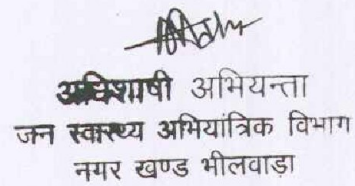 अधिशाषी अभियन्ता
जन स्वास्थ्य अभियांत्रिक विभाग
नगर खण्ड भीलवाड़ा